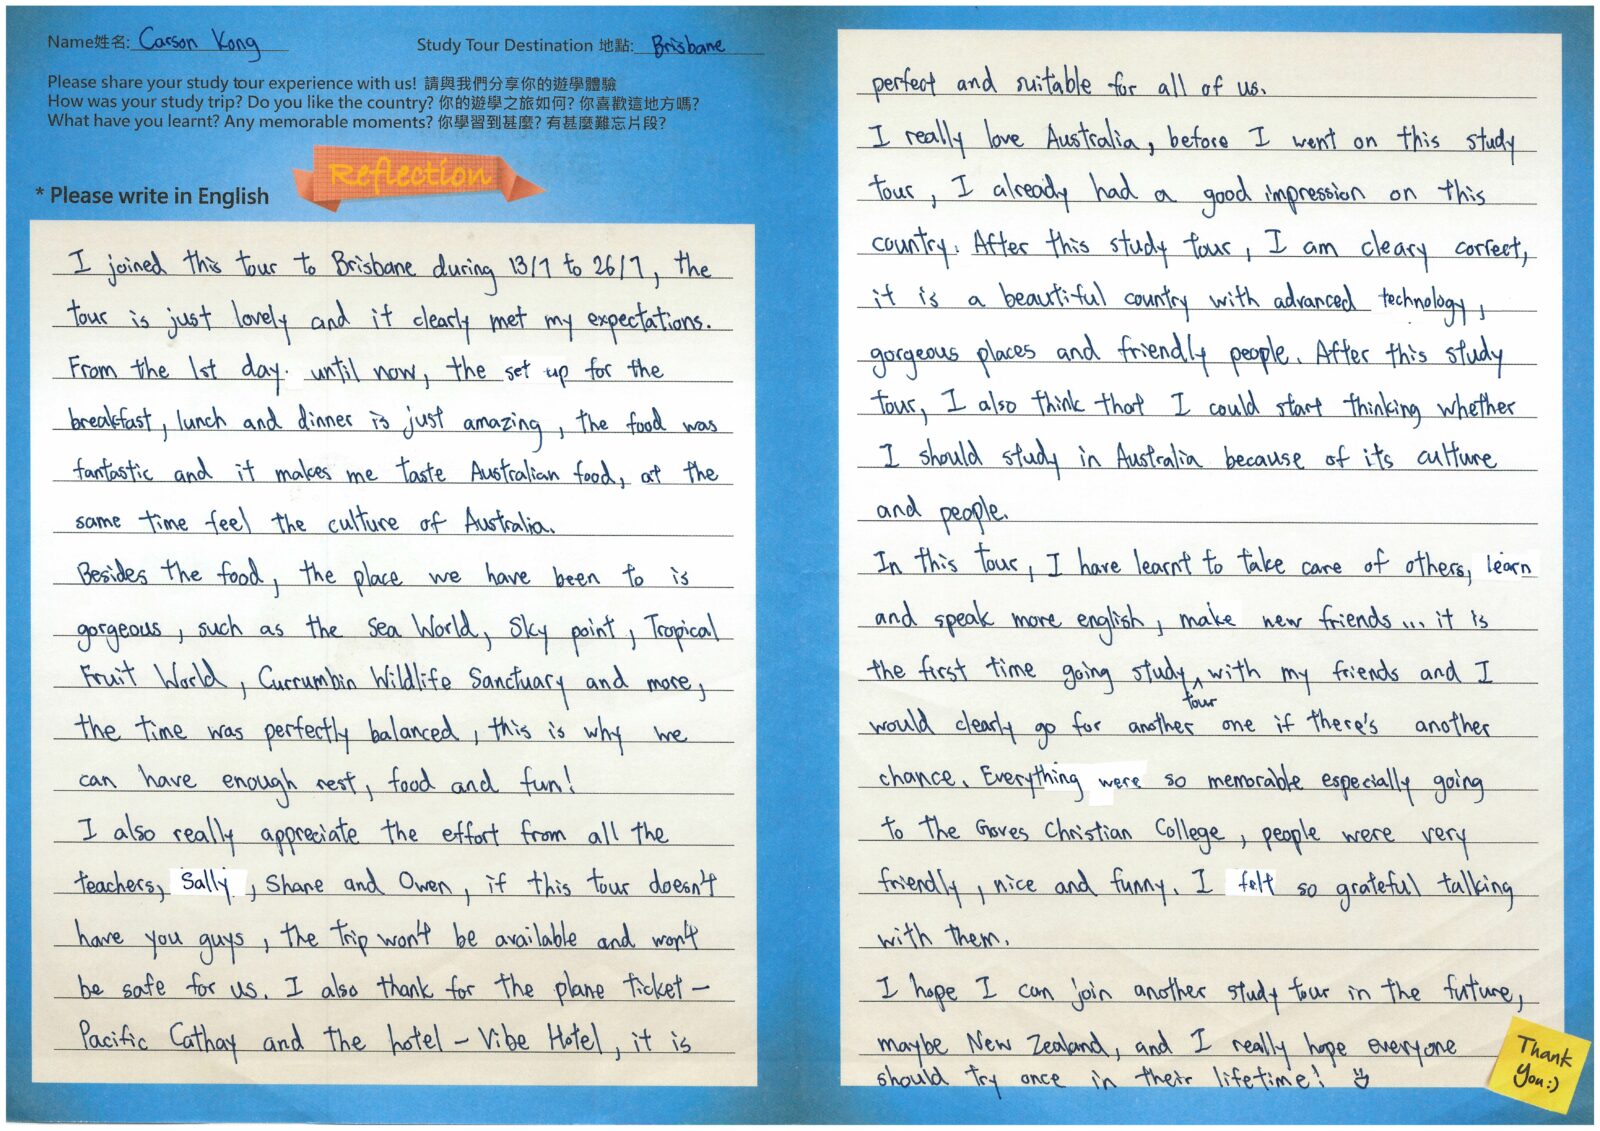 Name姓名: Carson Kong
Study Tour Destination 地點: Brisbane
Please share your study tour experience with us! 請與我們分享你的遊學體驗
How was your study trip? Do you like the country? 你的遊學之旅如何? 你喜歡這地方嗎?
What have you learnt? Any memorable moments? 你學習到甚麼? 有甚麼難忘片段?
Reflection
* Please write in English
I joined this tour to Brisbane during 13/7 to 26/7, the
tour is just lovely and it clearly met my expectations.
From the 1st day. until now, the set up for the
breakfast, lunch and dinner is just amazing, the food was
fantastic and it makes me taste Australian food, at the
same time feel the culture of Australia.
Besides the food, the place we have been to is
gorgeous, such as the Sea World, Sky point, Tropical
Fruit World, Currumbin Wildlife Sanctuary and more,
the time was perfectly balanced, this is why we
can have enough rest, food and fun!
I also really appreciate the effort from all the
teachers, Sally, Shane and Owen, if this tour doesn't
have you guys, the trip won't be available and won't
be safe for us. I also thank for the plane ticket –
Pacific Cathay and the hotel – Vibe Hotel, it is
perfect and suitable for all of us.
I really love Australia, before I went on this study
tour, I already had a good impression on this
country. After this study tour, I am cleary correct,
it is a beautiful country with advanced technology,
gorgeous places and friendly people. After this study
tour, I also think that I could start thinking whether
I should study in Australia because of its culture
and people.
In this tour, I have learnt to take care of others, learn
and speak more english, make new friends... it is
the first time going study tour with my friends and I
would clearly go for another one if there's another
chance. Everything were so memorable especially going
to the Groves Christian College, people were very
friendly, nice and funny. I felt so grateful talking
with them.
I hope I can join another study tour in the future,
maybe New Zealand, and I really hope everyone
should try once in their lifetime!
Thank
You:)